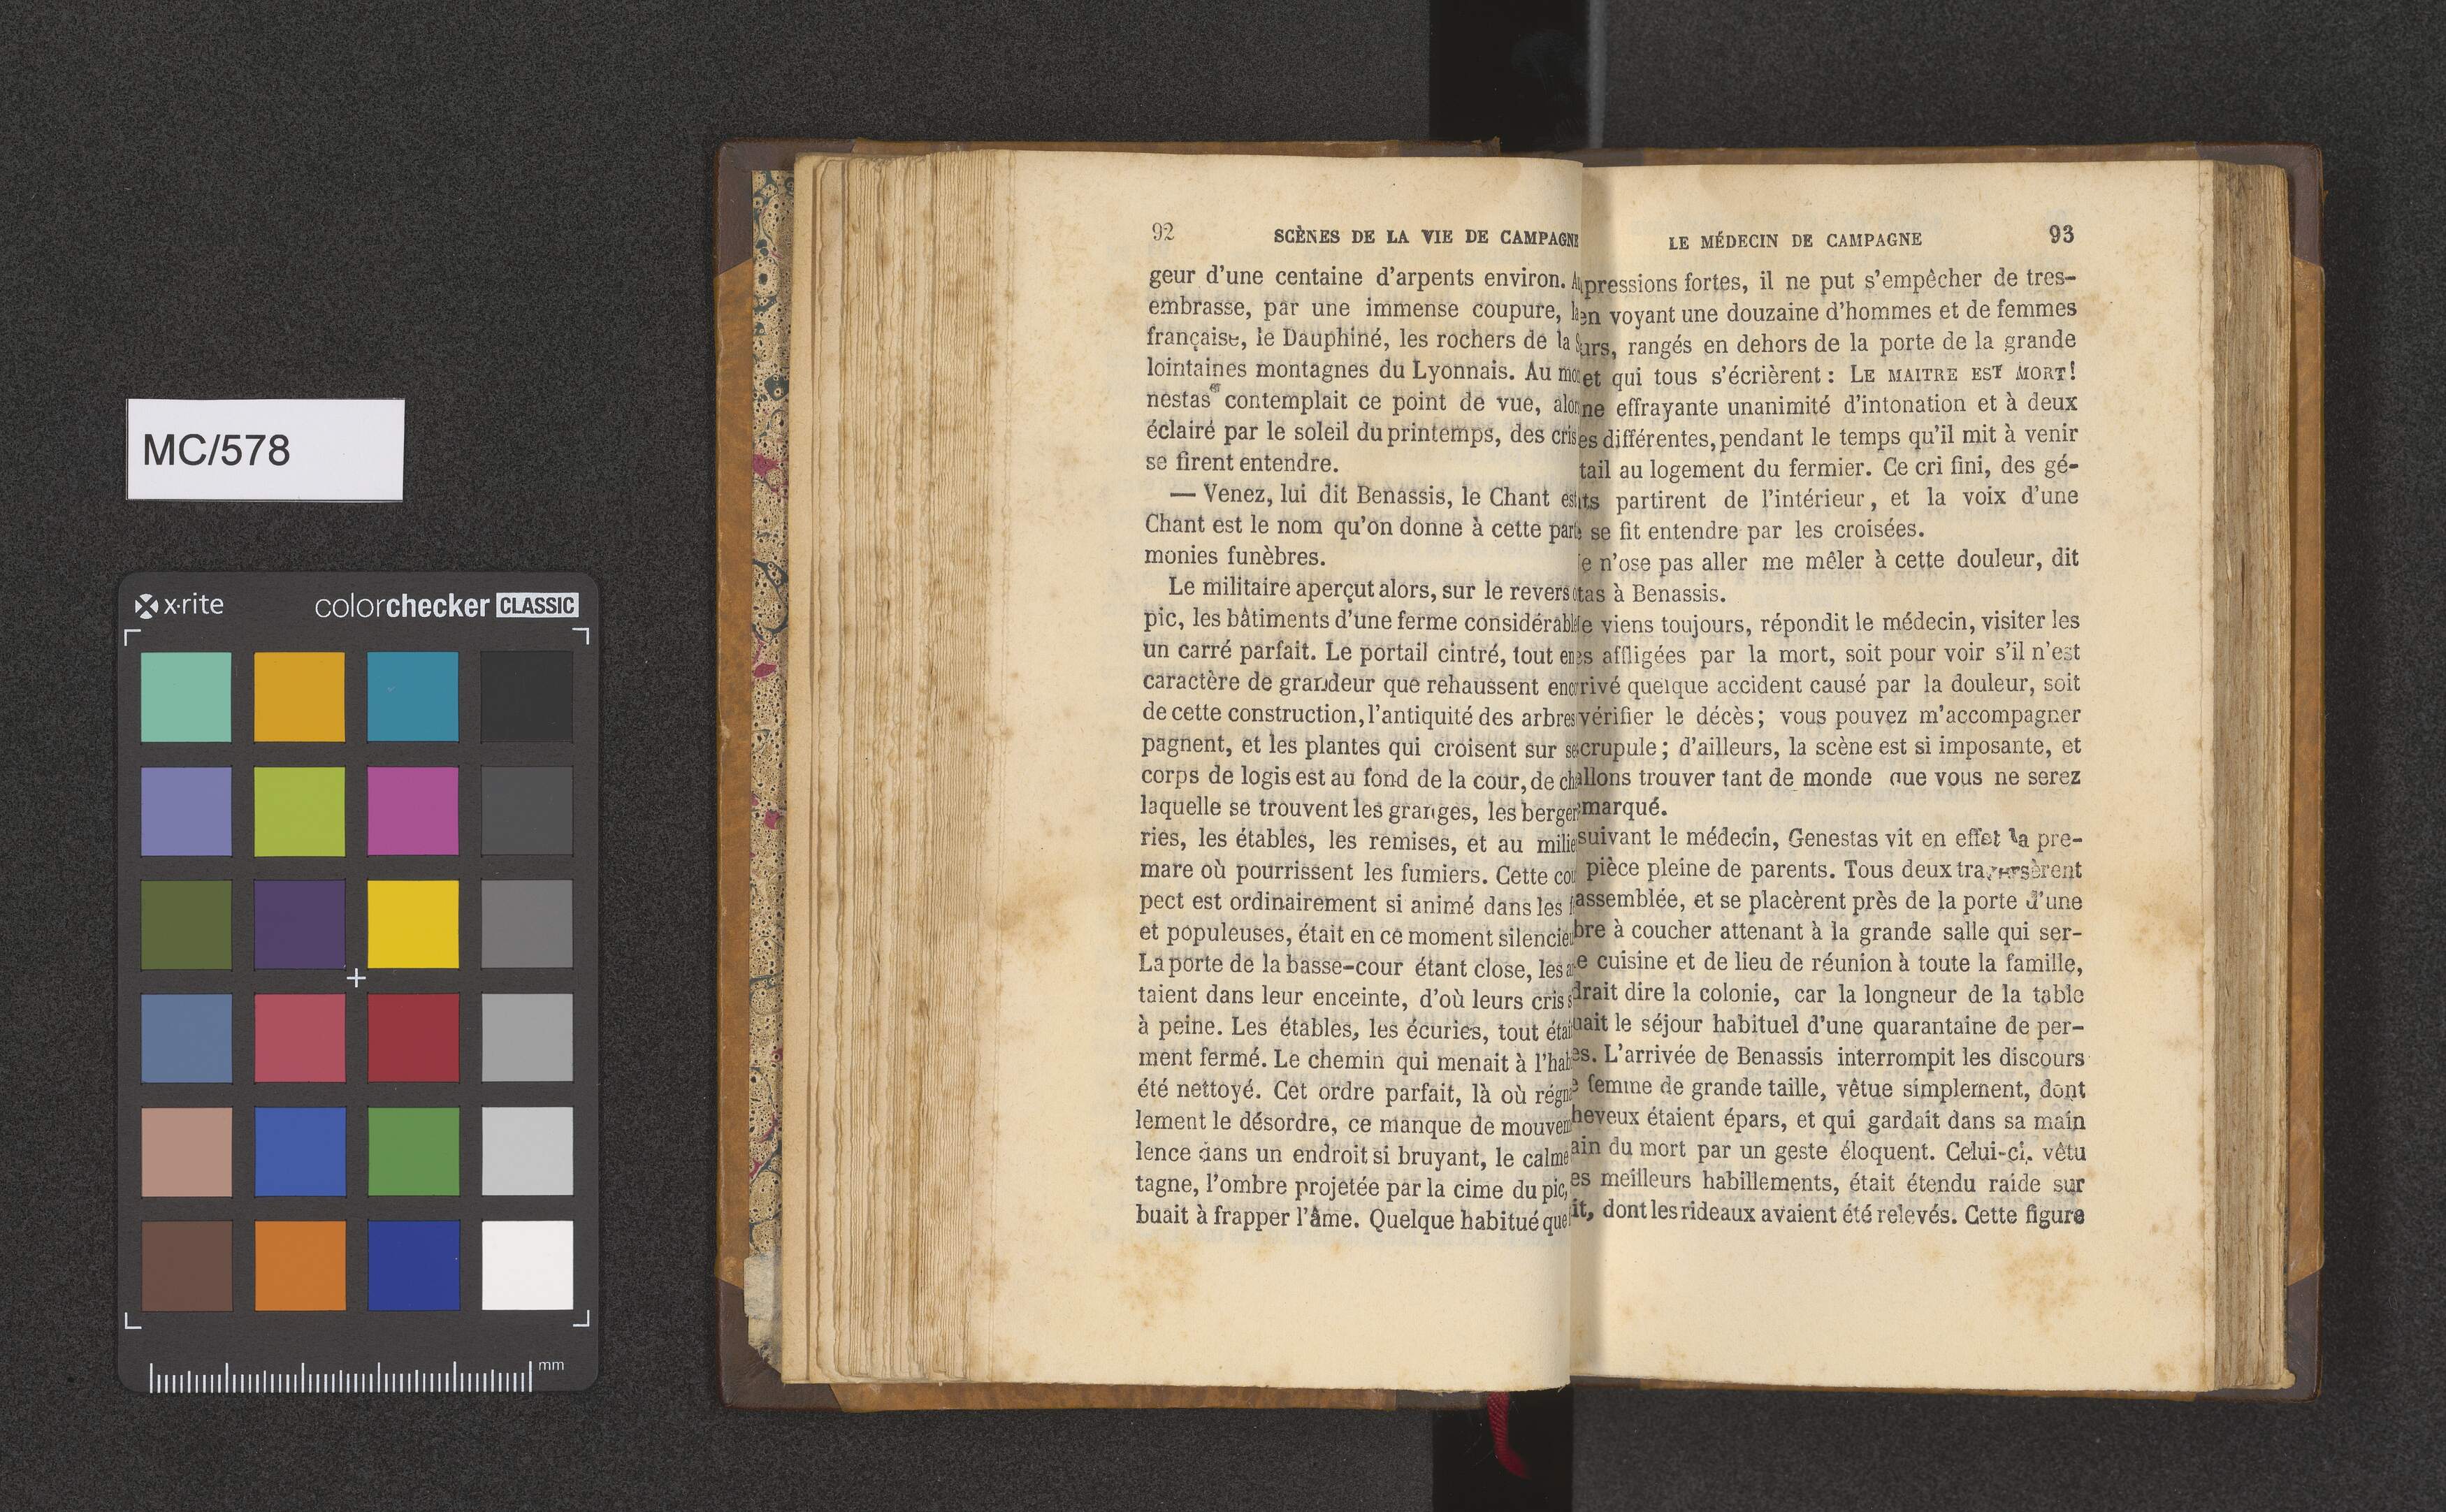 MC/578
x·rite
colorchecker CLASSIC
mm
92
SCÈNES DE LA VIE DE CAMPAGNE
geur d'une centaine d'arpents environ.
embrasse, par une immense coupure,
française, le Dauphiné, les rochers de la
lointaines montagnes du Lyonnais. Au
nestas contemplait ce point de vue,
éclairé par le soleil du printemps, des cris
se firent entendre.
— Venez, lui dit Benassis, le Chant est
Chant est le nom qu'on donne à cette
monies funèbres.
Le militaire aperçut alors, sur le revers
pic, les bâtiments d'une ferme
un carré parfait. Le portail cintré, tout en
caractère de grandeur que rehaussent
de cette construction, l'antiquité des arbres
pagnent, et les plantes qui croisent sur
corps de logis est au fond de la cour, de
laquelle se trouvent les granges, les
ries, les étables, les remises, et au
mare où pourrissent les fumiers. Cette
pect est ordinairement si animé dans les
et populeuses, était en ce moment
La porte de la basse-cour étant close, les
taient dans leur enceinte, d'où leurs cris
à peine. Les étables, les écuries, tout
ment fermé. Le chemin qui menait à
été nettoyé. Cet ordre parfait, là où
lement le désordre, ce manque de
lence dans un endroit si bruyant, le calme
tagne, l'ombre projetée par la cime du pic,
buait à frapper l'âme. Quelque habitué que
LE MÉDECIN DE CAMPAGNE
93
pressions fortes, il ne put s'empêcher de tres-
en voyant une douzaine d'hommes et de femmes
urs, rangés en dehors de la porte de la grande
et qui tous s'écrièrent : LE MAITRE EST MORT!
ne effrayante unanimité d'intonation et à deux
es différentes, pendant le temps qu'il mit à venir
tail au logement du fermier. Ce cri fini, des gé-
ts partirent de l'intérieur, et la voix d'une
se fit entendre par les croisées.
e n'ose pas aller me mêler à cette douleur, dit
tas à Benassis.
e viens toujours, répondit le médecin, visiter les
s affligées par la mort, soit pour voir s'il n'est
rivé quelque accident causé par la douleur, soit
vérifier le décès; vous pouvez m'accompagner
crupule; d'ailleurs, la scène est si imposante, et
allons trouver tant de monde que vous ne serez
marqué.
suivant le médecin, Genestas vit en effet la pre-
pièce pleine de parents. Tous deux traversèrent
assemblée, et se placèrent près de la porte d'une
bre à coucher attenant à la grande salle qui ser-
e cuisine et de lieu de réunion à toute la famille,
drait dire la colonie, car la longneur de la table
uait le séjour habituel d'une quarantaine de per-
es. L'arrivée de Benassis interrompit les discours
e femme de grande taille, vêtue simplement, dont
heveux étaient épars, et qui gardait dans sa main
ain du mort par un geste éloquent. Celui-ci, vêtu
es meilleurs habillements, était étendu raide sur
it, dont les rideaux avaient été relevés. Cette figure